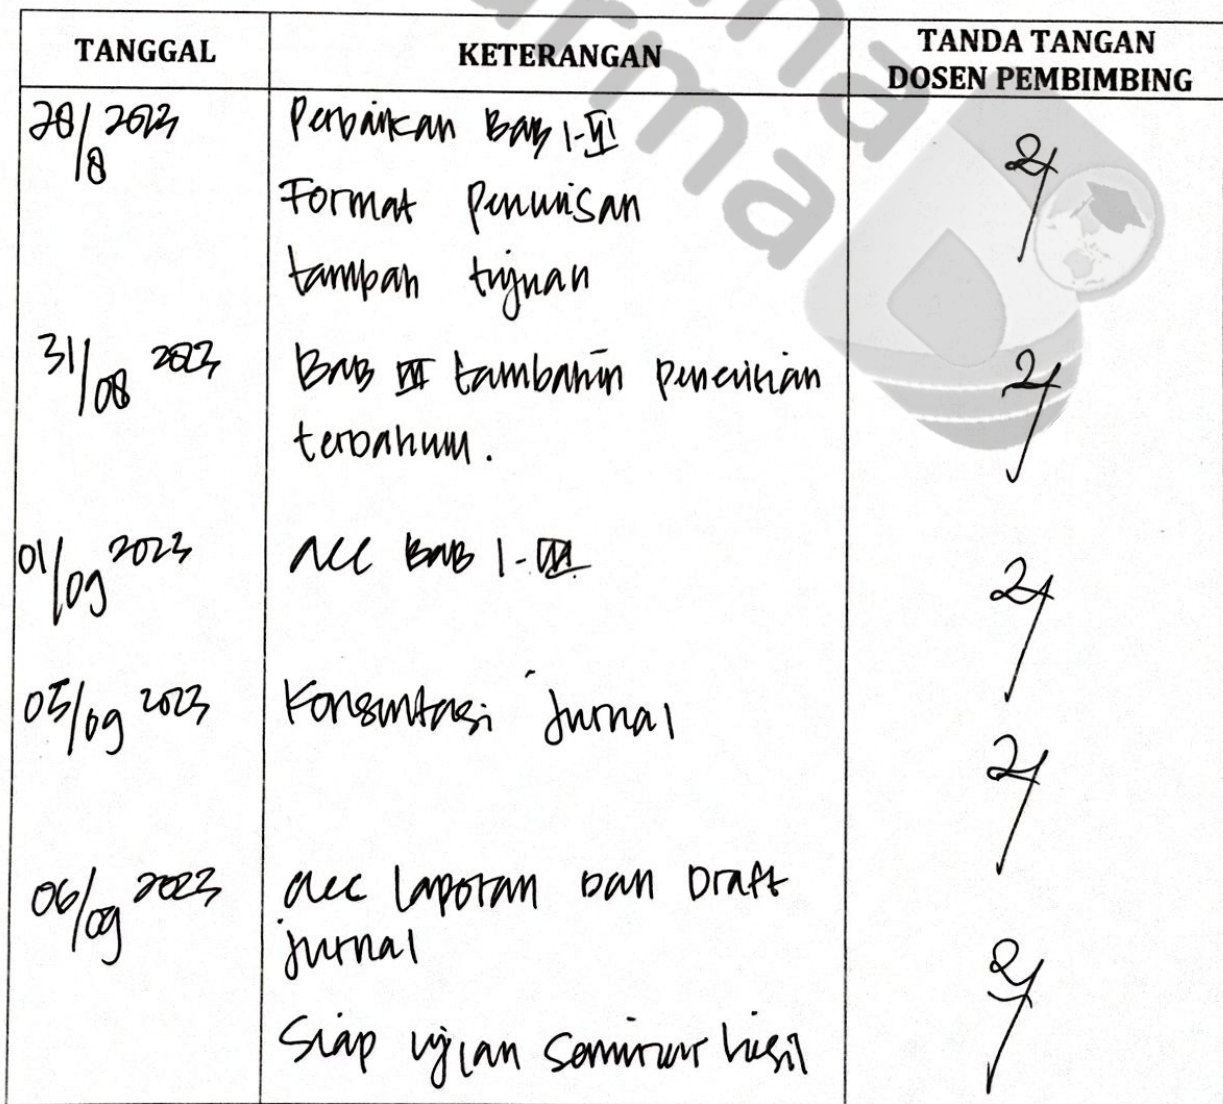 TANGGAL KETERANGAN TANDA TANGAN
DOSEN PEMBIMBING
28/8 2023 Perbaikan Bab I-VI
Format Penulisan
tambah tujuan
31/08 2023 Bab III tambahin penelitian
terdahulu.
01/09 2023 acc Bab I-
05/09 2023 Konsultasi Jurnal
06/09 2023 acc laporan dan Draft
jurnal
Siap ujian seminar hasil